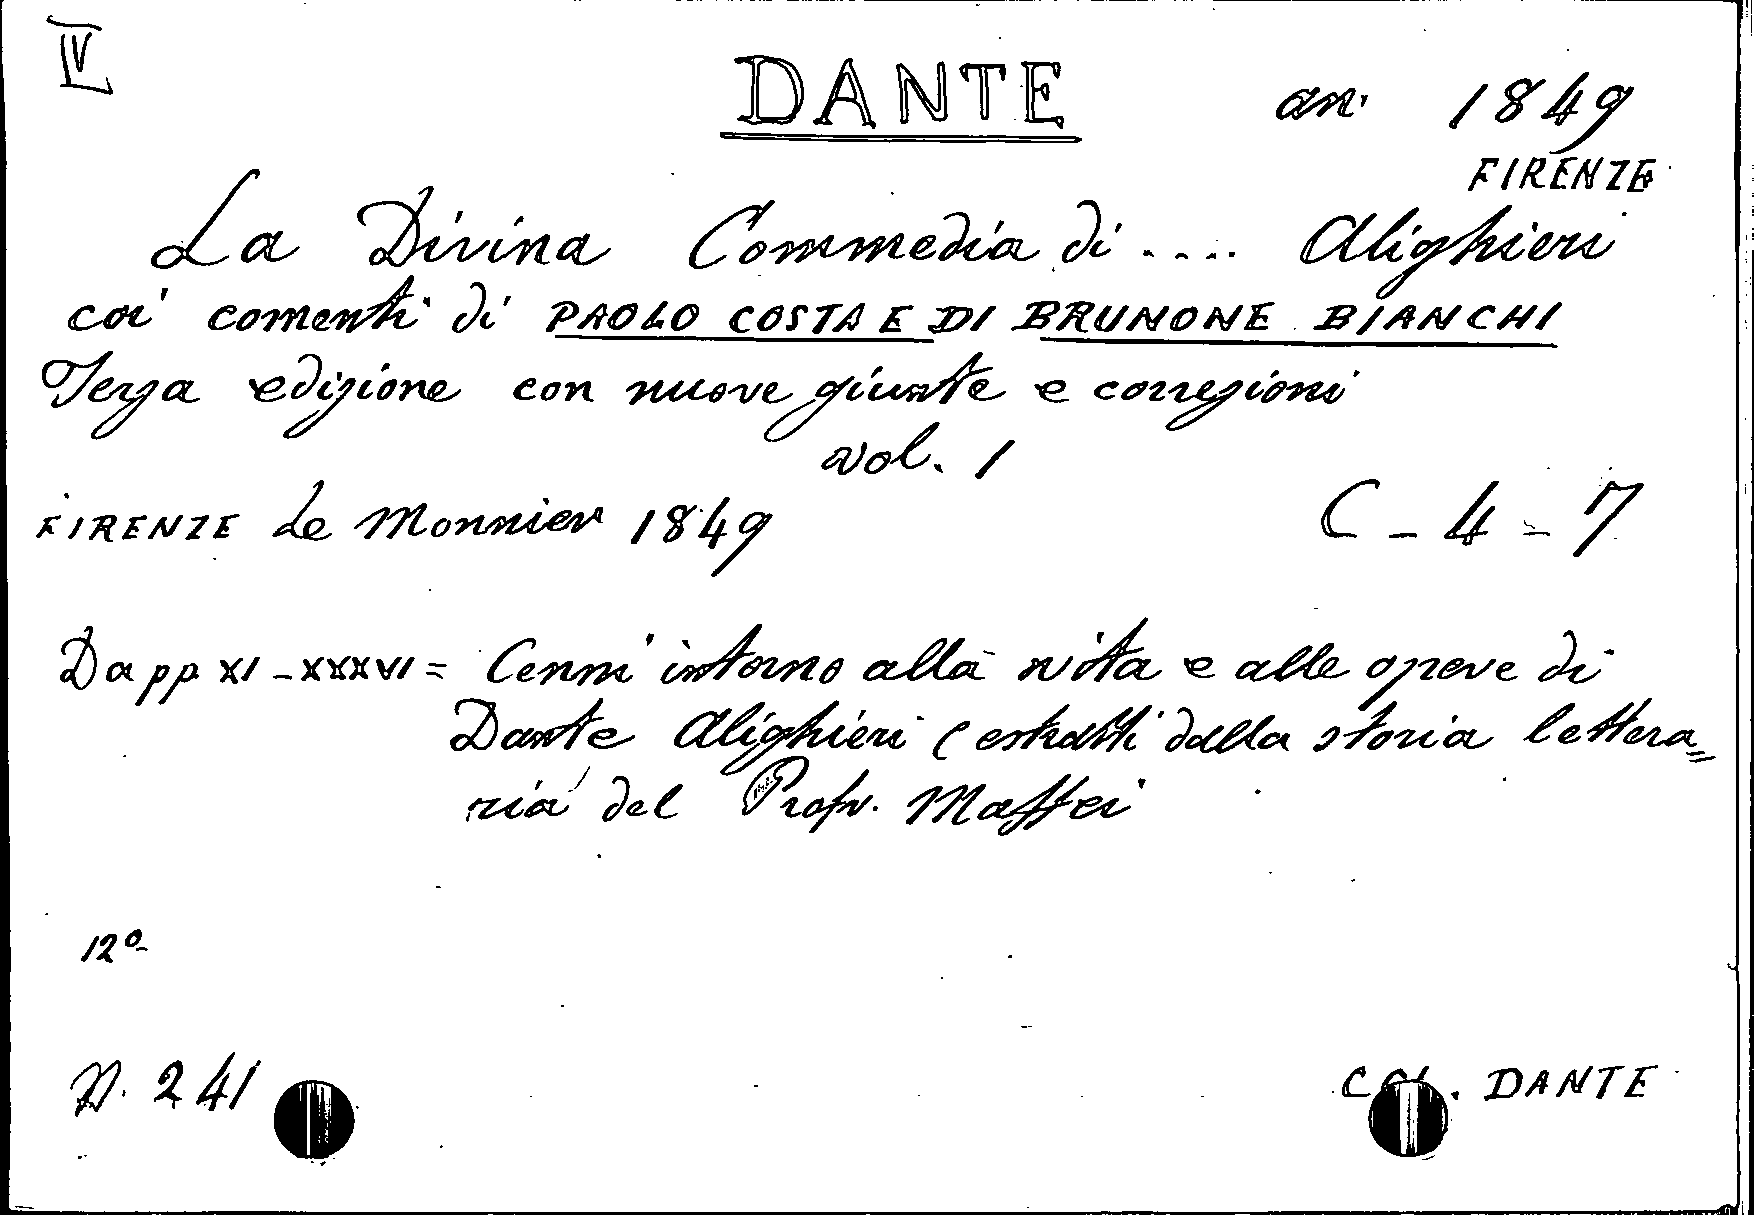 IV
DANTE an. 1849
FIRENZE
La Divina Commedia di .... Alighieri
coi comenti di PAOLO COSTA E DI BRUNONE BIANCHI
Terza edizione con nuove giunte e correzioni
vol. 1
FIRENZE Le Monnier 1849 C - 4 - 7
Da pp. XI - XXXVI = Cenni intorno alla vita e alle opere di
Dante Alighieri (estratti dalla storia lettera=
ria del Prof. Maffei
12º
N. 241 DANTE